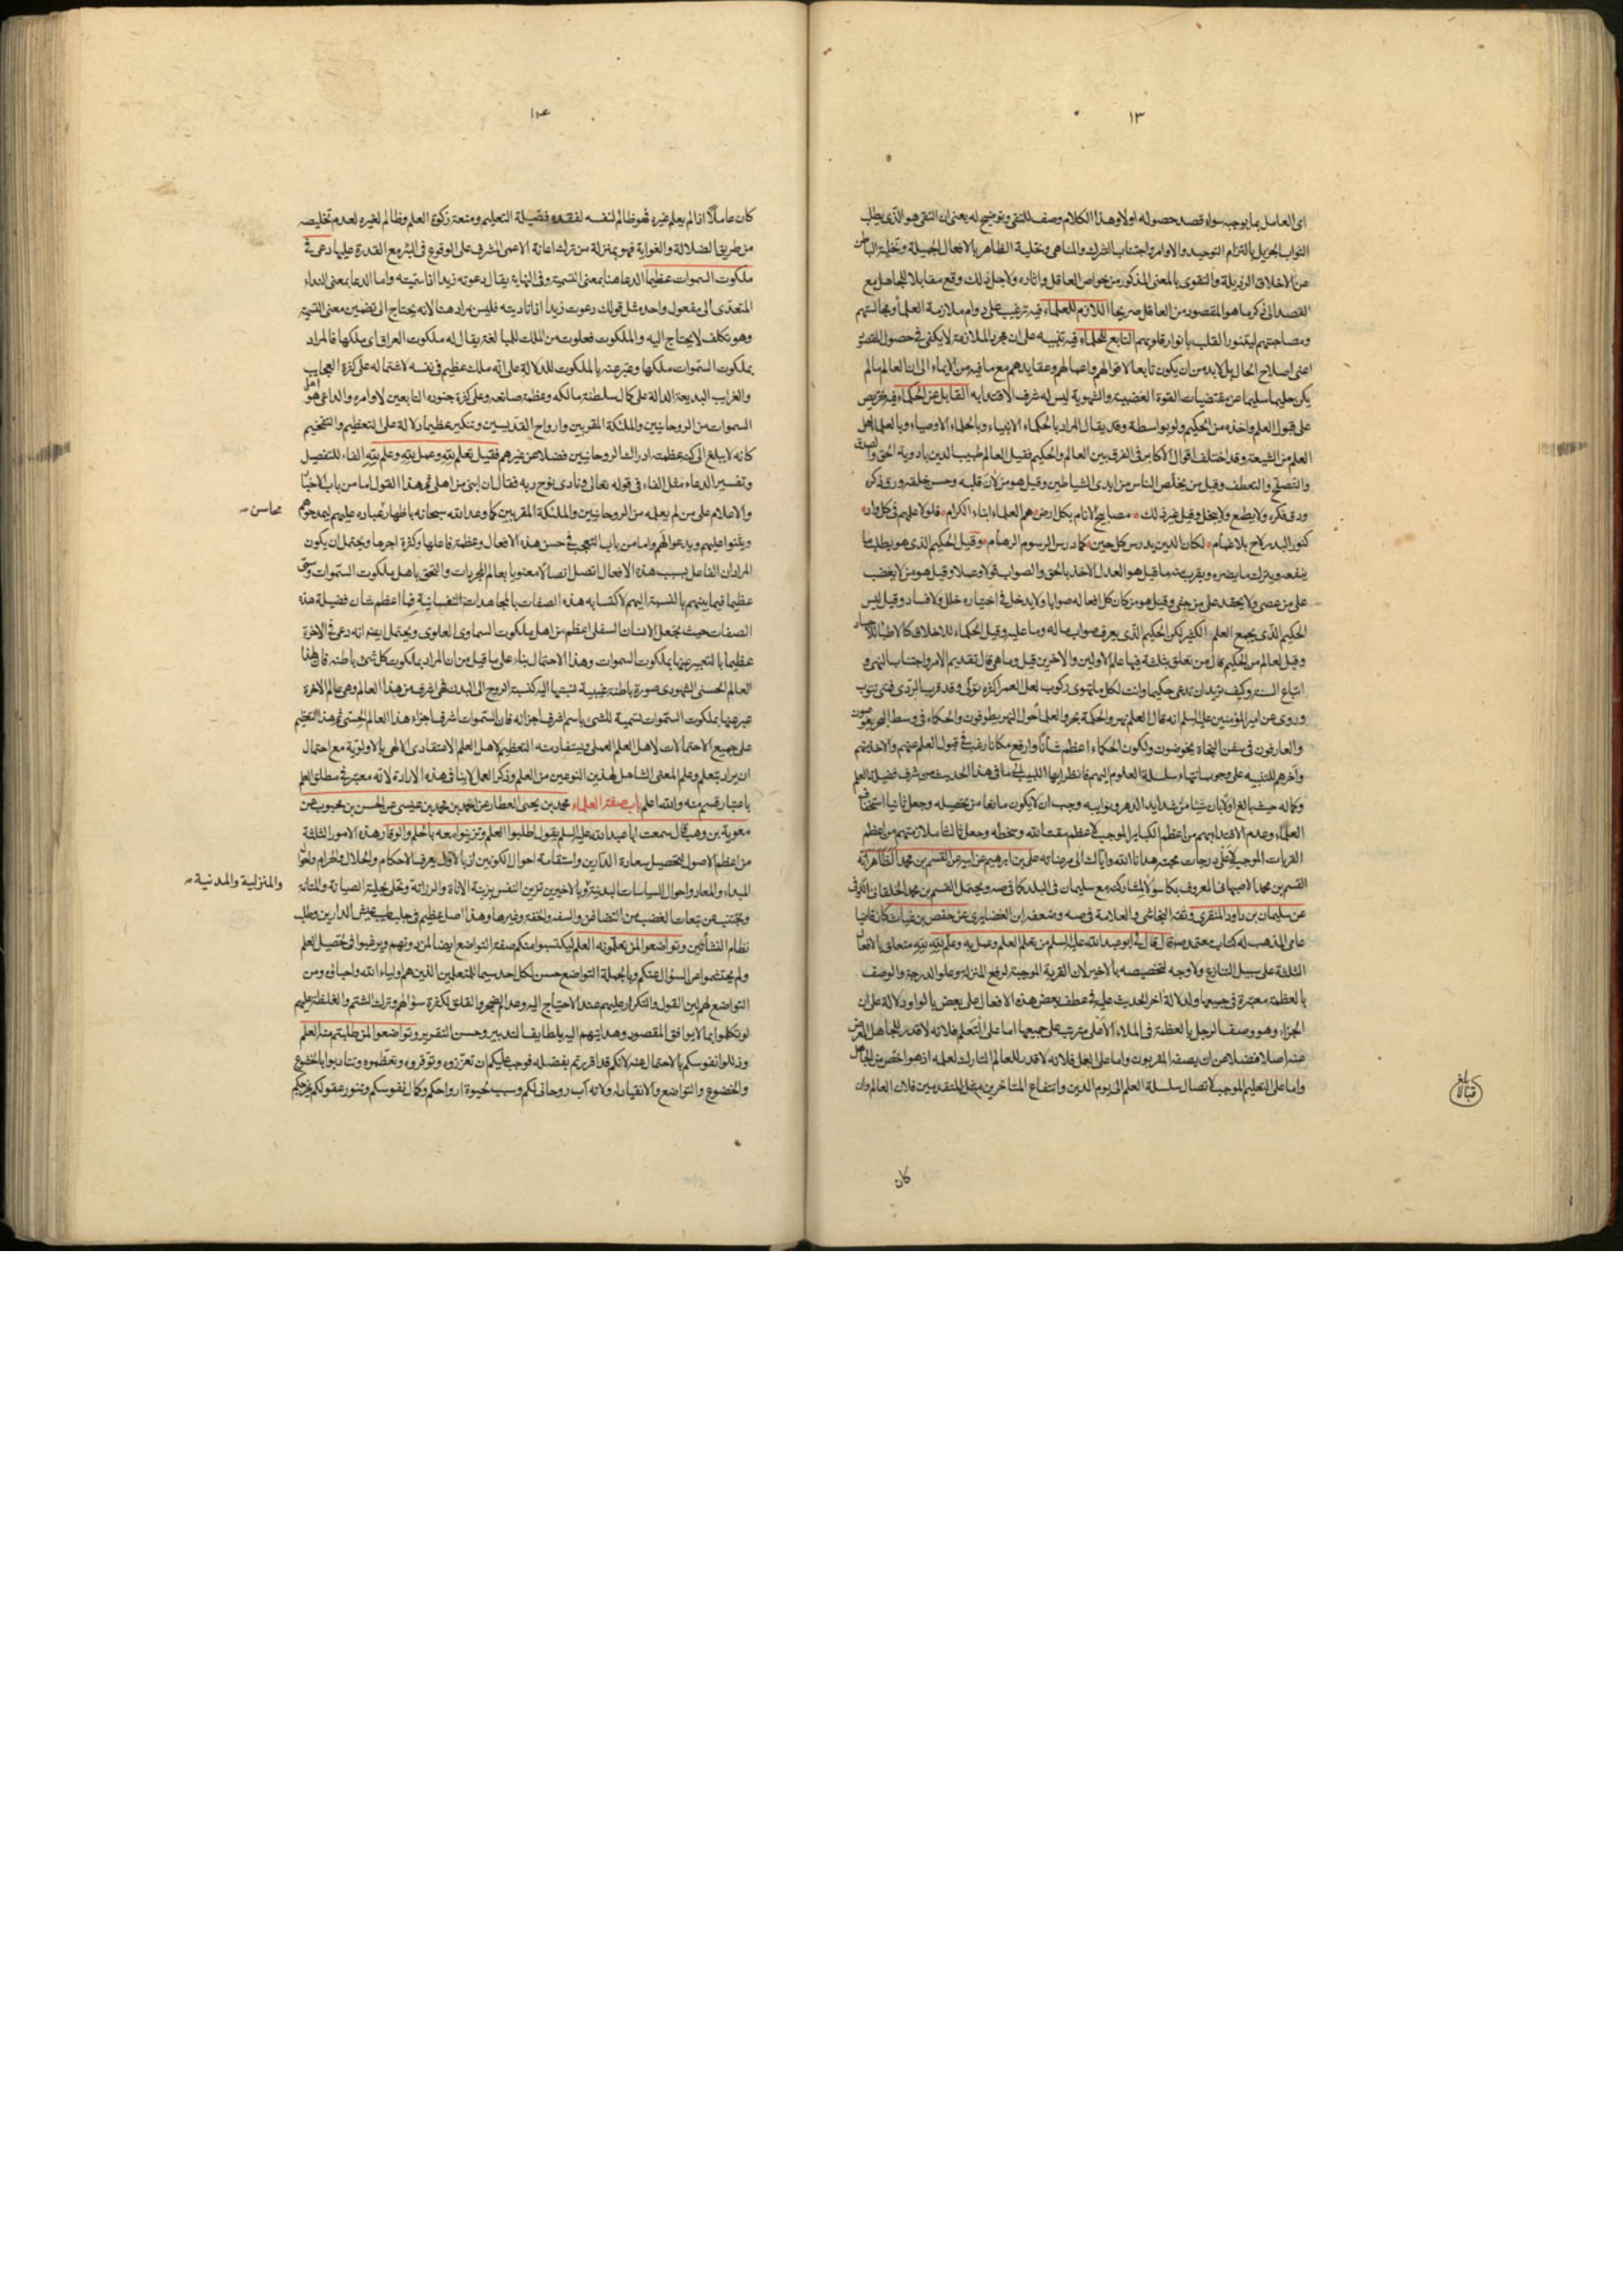 ١٣
اى العامل بما يوجبه سواء قصد حصوله اولا وهذا الكلام وصف للتقى وتوضيح له يعنى ان التقى هو الذى يطلب
الثواب الجزيل بالتزام التوحيد والاوامر واجتناب الشرك والمناهى وتحلية الظاهر بالافعال الجميلة وتخلية الباطن
عن الاخلاق الرذيلة والتقوى بالمعنى المذكور من خواص العاقل واثاره ولاجل ذلك وقع مقابلا للجاهل مع
القصد الى ذكر ما هو المقصود من العاقل صريحا اللازم للعلماء فيه ترغيب على دوام ملازمة العلماء ومجالستهم
ومصاحبتهم ليتنور القلب بانوار قلوبهم التابع للحلماء فيه تنبيه على ان مجرد الملازمة لا يكفى فى حصول المقصود
اعنى اصلاح الحال بل لابد من ان يكون تابعا لاقوالهم واعمالهم وعقايدهم مع ما فيه من الايماء الى ان العالم ما لم
يكن حليما سليما عن مقتضيات القوة الغضبية والشهوية ليس له شرف الاقتداء به القابل عن الحكماء فيه تحريص
على قبول العلم واخذه من الحكيم ولو بواسطة وقد يقال المراد بالحكماء الانبياء وبالحلماء الاوصياء وبالعلماء اهل
العلم من الشيعة وقد اختلف اقوال الاكابر فى الفرق بين العالم والحكيم فقيل العالم طبيب الدين بادوية الحق والصدق
والتصفح والتعطف وقيل من يخلص الناس من ايدى الشياطين وقيل هو من لان قلبه وحسن خلقه ورق ذكره
ودق فكره ولا يطمع ولا يبخل وقيل غير ذلك مصابيح الانام بكل ارض هم العلماء ابناء الكرام فلولا علمهم فى كل واد
كنور البدر لاح بلا غمام لكان الدين يدرس كل حين كما درس الرسوم الرهام وقيل الحكيم الذى هو يطلب ما
ينفعه ويترك ما يضره ويقرب منه ما قيل هو العدل الاخذ بالحق والصواب قولا وعملا وقيل هو من لا يغضب
على من عصى ولا يحقد على من جفى وقيل هو من كان كل افعاله صوابا ولا يدخل فى اختياره خلل ولا فساد وقيل ليس
الحكيم الذى يجمع العلم الكثير لكن الحكيم الذى يعرف صواب ما له وما عليه وقيل الحكماء للاخلاق كالاطباء للاجساد
وقيل لعالم من الحكيم قال من تعلق بثلثة فيها علم الاولين والاخرين قيل وما هى قال تقديم الامر واجتناب النهى و
اتباع السنة وكيف تريد ان تدعى حكيما وانت لكل ما تهوى ركوب لعل العمر اكثره تولى وقد قرب الردى فمتى تتوب
وروى عن امير المؤمنين عليه السلم انه قال العلم نهر والحكمة بحر والعلماء حول النهر يطوفون والحكماء فى وسط البحر يغوصون
والعارفون فى سفن النجاة يخوضون ولكون الحكماء اعظم شأنا وارفع مكانا رغب فى قبول العلم عنهم والاخذ منهم
وآخرهم للتنبيه على وجوب انتهاء سلسلة العلوم اليهم فانظر ايها اللبيب الى ما فى هذا الحديث من شرف فضيلة العلم
وكماله حيث بالغ اولا بان شيئا من شدايد الدهر ونوايبه وجب ان لا يكون مانعا من تحصيله وجعل ثانيا استخفاف
العلماء وعدم الاقتداء بهم من اعظم الكباير الموجب لاعظم مقت الله وسخطه وجعل ثالثا ملازمتهم من اعظم
القربات الموجب لاعلى درجات محبته هدانا الله واياك الى مرضاته على بن ابراهيم عن ابيه عن القسم بن محمد الظاهر انه
القسم بن محمد الاصبهانى المعروف بكاسولا لمشاركته مع سليمان فى البلد كما فى صه ويحتمل القسم بن محمد الخلقانى الكوفى
عن سليمان بن داود المنقرى وثقه النجاشى والعلامة فى صه وضعفه ابن الغضايرى عن حفص بن غياث كان قاضيا
عامى المذهب له كتاب معتمد صه قال قال لى ابو عبد الله عليه السلم من تعلم العلم وعمل به وعلم لله لله متعلق بالافعال
الثلثة على سبيل التنازع ولا وجه لتخصيصه بالاخير لان القربة الموجبة لرفع المنزلة وعلو الدرجة والوصف
بالعظمة معتبرة فى جميعها ولدلالة اخر الحديث عليه فى عطف بعض هذه الافعال على بعض بالواو دلالة على ان
الجزاء وهو وصف الرجل بالعظمة فى الملاء الاعلى مترتب على جميعها اما على التعلم فلانه لا قدر للجاهل المعرض
عنه اصلا فضلا عن ان يصفه المقربون واما على العمل فلانه لا قدر للعالم التارك لعلمه اذ هو اخس من الجاهل
واما على التعليم الموجب لاتصال سلسلة العلم الى يوم الدين وانتفاع المتاخرين مثل المتقدمين فلان العالم وان
كان
بلغ قبالا
١٤
كان عاملا اذا لم يعلم غيره فهو ظالم لنفسه لفقده فضيلة التعليم ومنعه زكوة العلم وظالم لغيره لعدم تخليصه
من طريق الضلالة والغواية فهو بمنزلة من ترك اعانة الاعمى المشرف على الوقوع فى البئر مع القدرة عليها دعى فى
ملكوت السموات عظيما الدعا هنا بمعنى التسمية وفى النهاية يقال دعوته زيدا اذا سميته واما الدعا بمعنى النداء
المتعدى الى مفعول واحد مثل قولك دعوت زيدا اذا ناديته فليس بمراد هنا لانه يحتاج الى تضمين معنى التسمية
وهو تكلف لا يحتاج اليه والملكوت فعلوت من الملك للمبالغة يقال له ملكوت العراق اى ملكها فالمراد
بملكوت السموات ملكها وعبر عنه بالملكوت للدلالة على انه ملك عظيم فى نفسه لاشتماله على كثرة العجايب
والغرايب البديعة الدالة على كمال سلطنة مالكه وعظمة صانعه وعلى كثرة جنوده التابعين لاوامره والداعى هو اهل
السموات من الروحانيين والملئكة المقربين وارواح القديسين وتنكير عظيما دلالة على التعظيم والتفخيم
كانه لا يبلغ الى كنه عظمته ادراك الروحانيين فضلا عن غيرهم فقيل تعلم لله وعمل لله وعلم لله الفاء للتفصيل
وتفسير الدعاء مثل الفاء فى قوله تعالى ونادى نوح ربه فقال ان ابنى من اهلى ثم هذا القول اما من باب الاخبار
والاعلام على من لم يعلمه من الروحانيين والملئكة المقربين كما وعد الله سبحانه باظهار عباده عليهم ليمدحوهم
محاسن
ويثنوا عليهم ويدعوا لهم واما من باب التعجب فى حسن هذه الافعال وعظمة فاعلها وكثرة اجرها ويحتمل ان يكون
المراد ان الفاعل بسبب هذه الافعال اتصل اتصالا معنويا بعالم المجردات والتحق باهل ملكوت السموات وسمى
عظيما فيما بينهم بالنسبة اليهم لاكتسابه هذه الصفات بالمجاهدات النفسانية فما اعظم شان فضيلة هذه
الصفات حيث تجعل الانسان السفلى اعظم من اهل ملكوت السماوى العلوى ويحتمل ايضا انه دعى فى الاخرة
عظيما بالتعبير عنها بملكوت السموات وهذا الاحتمال بناء على ما قيل من ان المراد بملكوت كل شئ باطنه فان لهذا
العالم الحسى الشهودى صورة باطنة غيبية نسبتها اليه كنسبة الروح الى البدن فهى اشرف من هذا العالم وهى عالم الاخرة
عبر عنها بملكوت السموات تسمية للشئ باسم اشرف اجزائه فان السموات اشرف اجزاء هذا العالم الحسى ثم هذا التعظيم
على جميع الاحتمالات لاهل العلم العملى ويستفاد منه التعظيم لاهل العلم الاعتقادى الالهى بالاولوية مع احتمال
ان يراد بتعلم وعلم المعنى الشامل لهذين النوعين من العلم وذكر العمل لا ينافى هذه الارادة لانه معتبر فى مطلق العلم
باعتبار قسم منه والله اعلم باب صفة العلماء محمد بن يحيى العطار عن احمد بن محمد بن عيسى عن الحسن بن محبوب عن
معوية بن وهب قال سمعت ابا عبد الله عليه السلم يقول اطلبوا العلم وتزينوا معه بالحلم والوقار هذه الامور الثلثة
من اعظم الاصول لتحصيل سعادة الدارين واستقامة احوال الكونين اذ بالاول يعرف الاحكام والحلال والحرام واحوال
المبداء والمعاد واحوال السياسات البدنية وبالاخيرين تزين النفس بزينة الاناة والرزانة وتحلى بحلية الصيانة والمتانة
والمنزلية والمدنية
وتجتنب عن تبعات الغضب من التضاغن والسفه والخفة وغيرها وهذا اصل عظيم فى جلب طيب عيش الدارين وطلب
نظام النشأتين وتواضعوا لمن تعلمونه العلم ليكتسبوا منكم صفة التواضع ايضا لمن دونهم ويرغبوا فى تحصيل العلم
ولم يحتشموا عن السؤال عنكم وبالجملة التواضع حسن لكل احد سيما للمتعلمين الذين هم اولياء الله واحباؤه ومن
التواضع لهم لين القول والتكرار عليهم عند الاحتياج اليه وعدم الضجر والقلق بكثرة سؤالهم وترك الشتم والغلظة عليهم
لو تكلموا بما لا يوافق المقصود وهدايتهم اليه بلطايف التدبير وحسن التقرير وتواضعوا لمن طلبتم منه العلم
وذللوا نفوسكم بالاحتمال عنه لانكم قد اقررتم بفضله فوجب عليكم ان تعززوه وتوقروه وتعظموه وتتأدبوا بالخشوع
والخضوع والتواضع والانقياد له ولانه اب روحانى لكم وسبب لحيوة ارواحكم وكمال نفوسكم وتنور عقولكم